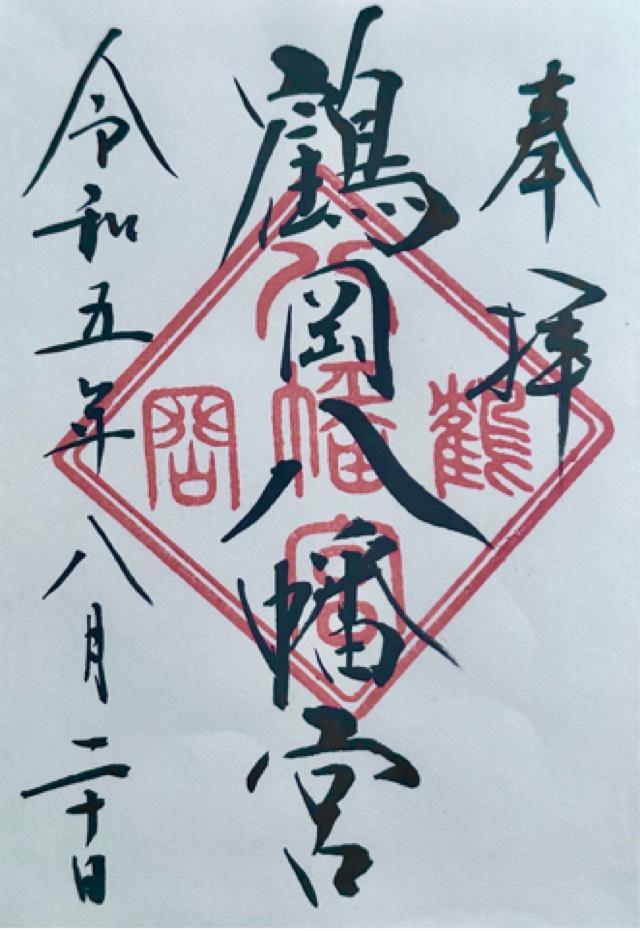 奉拝
鶴岡八幡宮
令和五年八月二十日
鶴
八幡宮
岡